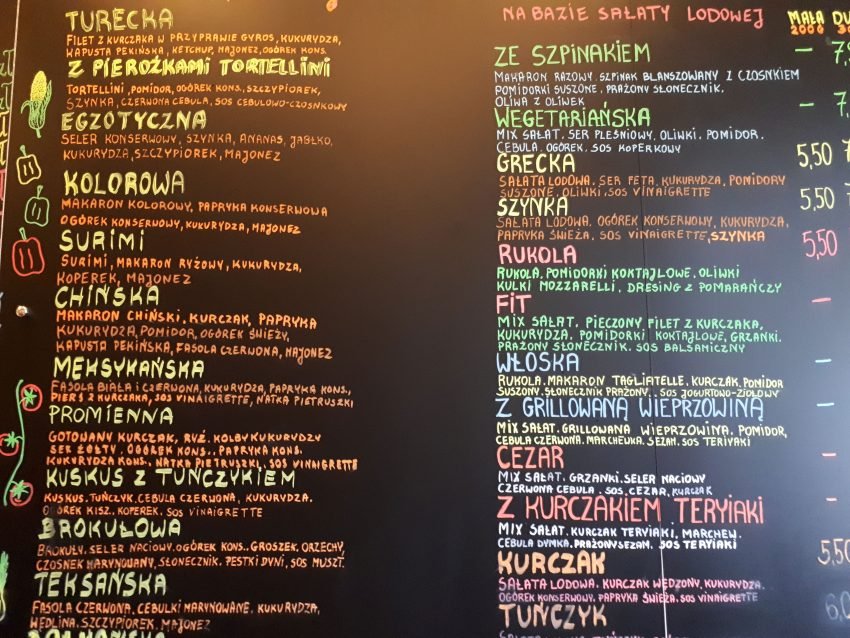 TURECKA
FILET Z KURCZAKA W PRZYPRAWIE GYROS, KUKURYDZA,
KAPUSTA PEKIŃSKA, KETCHUP, MAJONEZ, OGÓREK KONS.
Z PIEROŻKAMI TORTELLINI
TORTELLINI, POMIDOR, OGÓREK KONS., SZCZYPIOREK,
SZYNKA, CZERWONA CEBULA, SOS CEBULOWO-CZOSNKOWY
EGZOTYCZNA
SELER KONSERWOWY, SZYNKA, ANANAS, JABŁKO,
KUKURYDZA, SZCZYPIOREK, MAJONEZ
KOLOROWA
MAKARON KOLOROWY, PAPRYKA KONSERWOWA
OGÓREK KONSERWOWY, KUKURYDZA, MAJONEZ
SURIMI
SURIMI, MAKARON RYŻOWY, KUKURYDZA,
KOPEREK, MAJONEZ
CHIŃSKA
MAKARON CHIŃSKI, KURCZAK, PAPRYKA
KUKURYDZA, POMIDOR, OGÓREK ŚWIEŻY,
KAPUSTA PEKIŃSKA, FASOLA CZERWONA, MAJONEZ
MEKSYKAŃSKA
FASOLA BIAŁA I CZERWONA, KUKURYDZA, PAPRYKA KONS.,
PIERŚ Z KURCZAKA, SOS VINAIGRETTE, NATKA PIETRUSZKI
PROMIENNA
GOTOWANY KURCZAK, RYŻ, KOLBY KUKURYDZY
SER ŻÓŁTY, OGÓREK KONS., PAPRYKA KONS.
KUKURYDZA KONS., NATKA PIETRUSZKI, SOS VINAIGRETTE
KUSKUS Z TUŃCZYKIEM
KUSKUS, TUŃCZYK, CEBULA CZERWONA, KUKURYDZA,
OGÓREK KISZ., KOPEREK, SOS VINAIGRETTE
BROKUŁOWA
BROKUŁY, SELER NACIOWY, OGÓREK KONS., GROSZEK, ORZECHY,
CZOSNEK MARYNOWANY, SŁONECZNIK, PESTKI DYNI, SOS MUSZT.
TEKSAŃSKA
FASOLA CZERWONA, CEBULKI MARYNOWANE, KUKURYDZA,
WĘDLINA, SZCZYPIOREK, MAJONEZ
NA BAZIE SAŁATY LODOWEJ MAŁA
200G
ZE SZPINAKIEM – 7,
MAKARON RAZOWY, SZPINAK BLANSZOWANY Z CZOSNKIEM
POMIDORKI SUSZONE, PRAŻONY SŁONECZNIK,
OLIWA Z OLIWEK
WEGETARIAŃSKA – 7,
MIX SAŁAT, SER PLEŚNIOWY, OLIWKI, POMIDOR,
CEBULA, OGÓREK, SOS KOPERKOWY
GRECKA 5,50 7
SAŁATA LODOWA, SER FETA, KUKURYDZA, POMIDORY
SUSZONE, OLIWKI, SOS VINAIGRETTE
SZYNKA 5,50
SAŁATA LODOWA, OGÓREK KONSERWOWY, KUKURYDZA,
PAPRYKA ŚWIEŻA, SOS VINAIGRETTE, SZYNKA
RUKOLA 5,50
RUKOLA, POMIDORKI KOKTAJLOWE, OLIWKI
KULKI MOZZARELLI, DRESING Z POMARAŃCZY
FIT –
MIX SAŁAT, PIECZONY FILET Z KURCZAKA,
KUKURYDZA, POMIDORKI KOKTAJLOWE, GRZANKI,
PRAŻONY SŁONECZNIK, SOS BALSAMICZNY
WŁOSKA –
RUKOLA, MAKARON TAGLIATELLE, KURCZAK, POMIDOR
SUSZONY, SŁONECZNIK PRAŻONY, SOS JOGURTOWO-ZIOŁOWY
Z GRILLOWANĄ WIEPRZOWINĄ –
MIX SAŁAT, GRILLOWANA WIEPRZOWINA, POMIDOR,
CEBULA CZERWONA, MARCHEWKA, SEZAM, SOS TERIYAKI
CEZAR –
MIX SAŁAT, GRZANKI, SELER NACIOWY
CZERWONA CEBULA, SOS CEZAR, KURCZAK
Z KURCZAKIEM TERYIAKI –
MIX SAŁAT, KURCZAK TERYIAKI, MARCHEW,
CEBULA DYMKA, PRAŻONY SEZAM, SOS TERYIAKI
KURCZAK 5,50
SAŁATA LODOWA, KURCZAK WĘDZONY, KUKURYDZA,
OGÓREK KONSERWOWY, PAPRYKA ŚWIEŻA, SOS VINAIGRETTE
TUŃCZYK 6,0